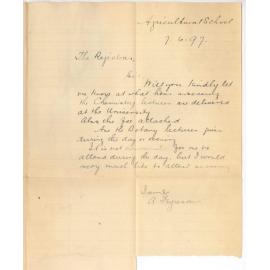 Agricultural School
7. 6. 97.
The Registrar,
Sir,
Will you kindly let
me know at what hour
the Chemistry lectures are delivered
at the University
Also the fee attached
Are the Botany lectures given
during the day or evening
It is not for me to
attend during the day, but I would
very much like to attend evening
A. Ferguson